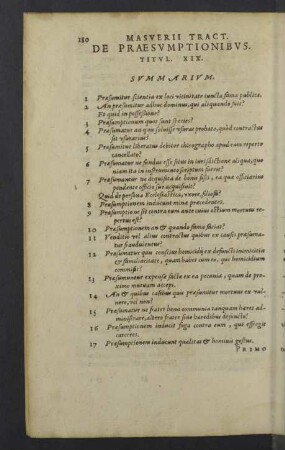 180 MASVERII TRACT.
DE PRAESVMPTIONIBVS.
TITVL. XIX.
SVMMARIVM.
1 Præsumitur scientia ex loci vicinitate iuncta fama publica.
2 An præsumitur adhuc dominus, qui aliquando fuit?
Et quid in possessione?
3 Præsumptionum quæ sunt species?
4 Præsumatur an quis soluisse vsuras probato, quòd contractus
sit vsurarius?
5 Præsumitur liberatus debitor chirographo apud eum reperto
cancellato?
6 Præsumatur ne fundus esse situs in iurisdictione aliqua, quo
niam ita in instrumento scriptum fuerit?
7 Præsumantur ne acquisita de bonis fisci, ea quæ officiarius
pendente officio suo acquisiuit?
Quid de persona Ecclesiastica, vxore, filiisve?
8 Præsumptionem inducunt minæ præcedentes.
9 Præsumptio ne sit contra eum ante cuius ostium mortuus re-
pertus est?
10 Præsumptionem an & quando fama faciat?
11 Venditio vel alius contractus quibus ex causis præsuma-
tur fraudulentus?
12 Præsumatur quis conscius homicidij ex defuncti inimicitia
& familiaritate, quam habet cum eo, qui homicidium
commisit?
13 Præsumuntur expensæ factæ ex ea pecunia, quam de pro-
ximo mutuam accepit.
14 An & quibus casibus quis præsumitur mortuus ex vul-
nere, vel non?
15 Præsumatur ne frater bona communia tanquam hæres ad-
ministrare, altero fratre sine hæredibus defuncto?
16 Præsumptionem inducit fuga contra eum, qui effregit
carceres.
17 Præsumptionem inducunt qualitas & hominis gestus.
PRIMO